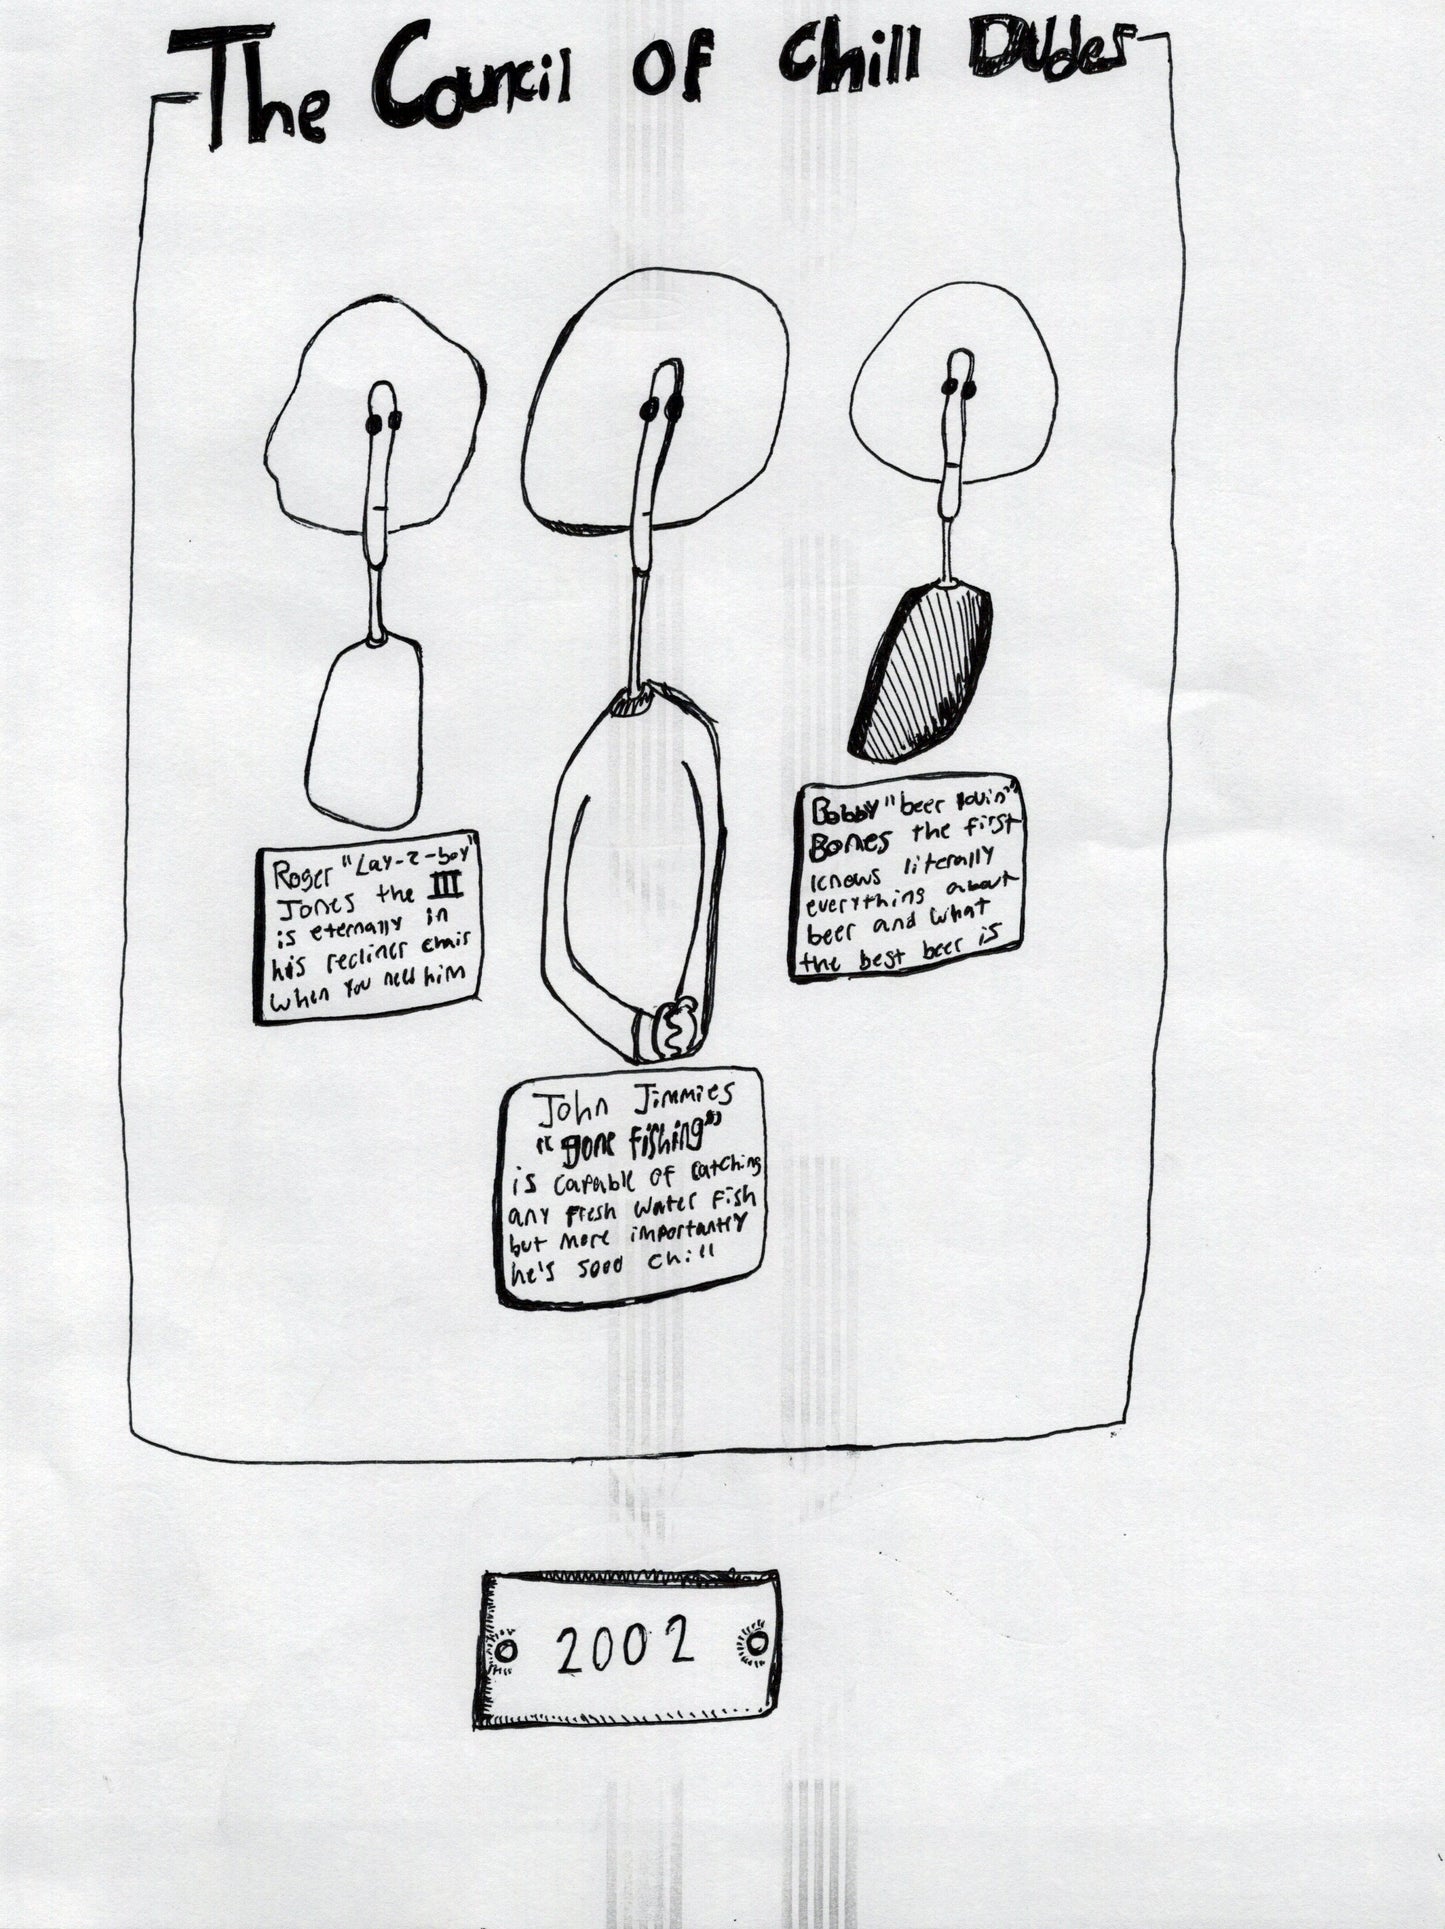 The Council of Chill Dudes
Roger "Lay-Z-boy"
Jones the III
is eternally in
his recliner chair
when you need him
Bobby "beer lovin"
Bones the first
knows literally
everything about
beer and what
the best beer is
John Jimmies
"gone fishing"
is capable of catching
any fresh water fish
but more importantly
he's sooo chill
2002